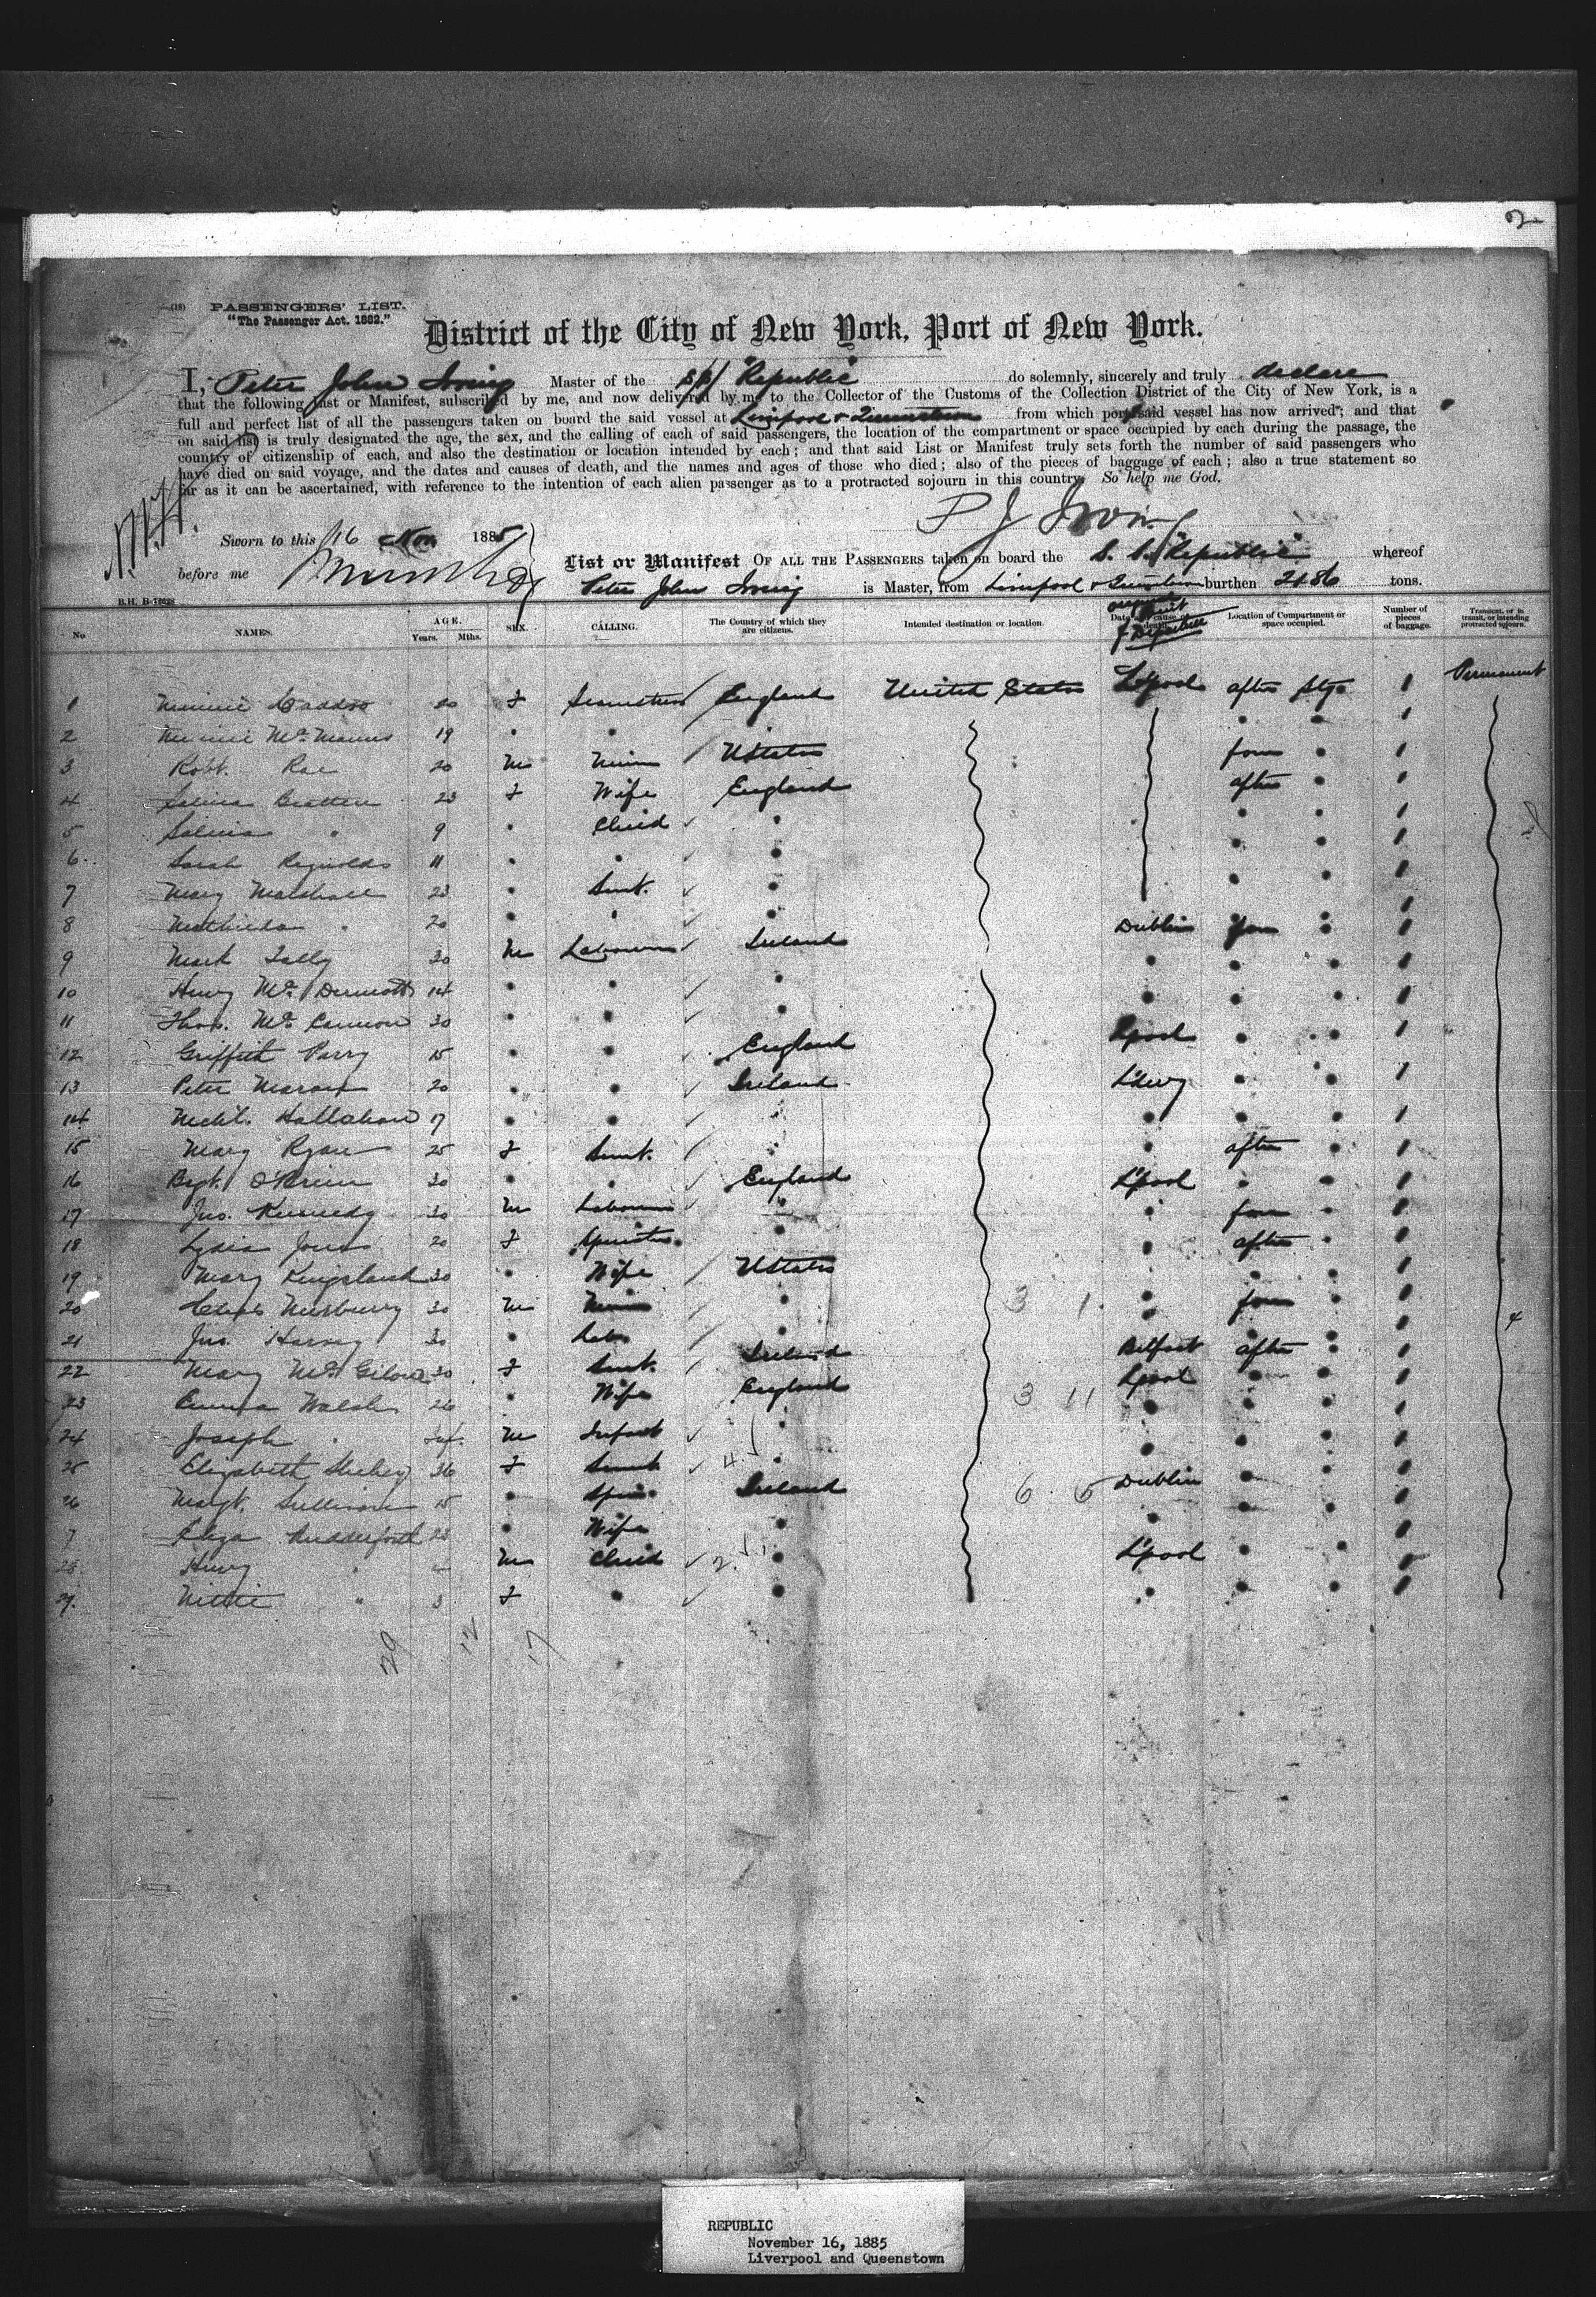 2
(18) PASSENGERS' LIST.
"The Passenger Act. 1882."
District of the City of New York, Port of New York.
I, Peter John Irving Master of the SS "Republic" do solemnly, sincerely and truly declare
that the following List or Manifest, subscribed by me, and now delivered by me to the Collector of the Customs of the Collection District of the City of New York, is a
full and perfect list of all the passengers taken on board the said vessel at Liverpool & Queenstown from which port said vessel has now arrived; and that
on said list is truly designated the age, the sex, and the calling of each of said passengers, the location of the compartment or space occupied by each during the passage, the
country of citizenship of each, and also the destination or location intended by each; and that said List or Manifest truly sets forth the number of said passengers who
have died on said voyage, and the dates and causes of death, and the names and ages of those who died; also of the pieces of baggage of each; also a true statement so
far as it can be ascertained, with reference to the intention of each alien passenger as to a protracted sojourn in this country. So help me God.
P J Irving
Sworn to this 16 Nov 1885
before me
List or Manifest OF ALL THE PASSENGERS taken on board the S. S. "Republic" whereof
Peter John Irving is Master, from Liverpool & Queenstown burthen 2186 tons.
B.H. B-7652S
No NAMES. AGE. Years. Mths. SEX. CALLING. The Country of which they are citizens. Intended destination or location. Date and cause of death. Location of Compartment or space occupied. Number of pieces of baggage. Transient, or in transit, or intending protracted sojourn.
1 Minnie 20 F England United States L'pool after stge 1 Permanent
2 Minnie McManus 19 " " " " 1
3 Robt. Rae 20 M Miner UStates fore " 1
4 Selina 23 F Wife England after " 1
5 Selina " 9 " Child " " " 1
6 Sarah Reynolds 11 " " " " " 1
7 Mary Marshall 23 " Servt. " " " 1
8 Mathilda " 20 " " " " 1
9 Mark Tally 30 M Labourer Ireland Dublin fore " 1
10 Henry McDermott 14 " " " " " " 1
11 Thos. McCannon 30 " " " " " " 1
12 Griffith Parry 15 " " England L'pool " " 1
13 Peter Moran 20 " " Ireland L'derry " " 1
14 Michl. Hallahan 17 " " " " " 1
15 Mary Ryan 25 F Servt. " " after " 1
16 Bgt. O'Brien 30 " " England L'pool " " 1
17 Jno. Kennedy 30 M Labourer " " fore " 1
18 Lydia Jones 20 F Spinster " " after " 1
19 Mary Kingsland 30 " Wife UStates " " 1
20 Chas Newbury 30 M Miner " 3 1 " fore " 1
21 Jno. Harvey 30 " Labr " " " 1
22 Mary 30 F Servt. Ireland Belfast after " 1
23 Emma Walsh 26 " Wife England 3 11 L'pool " " 1
24 Joseph " Inf. M Infant " " " 1
25 Elizabeth 36 F Servt " " " 1
26 Margt. Sullivan 15 " Spin " Ireland 6 5 Dublin " " 1
7 Eliza 23 " Wife " " " 1
28 Henry " M Child " L'pool " " 1
29. " 3 F " " " " " 1
29 12 17
REPUBLIC
November 16, 1885
Liverpool and Queenstown